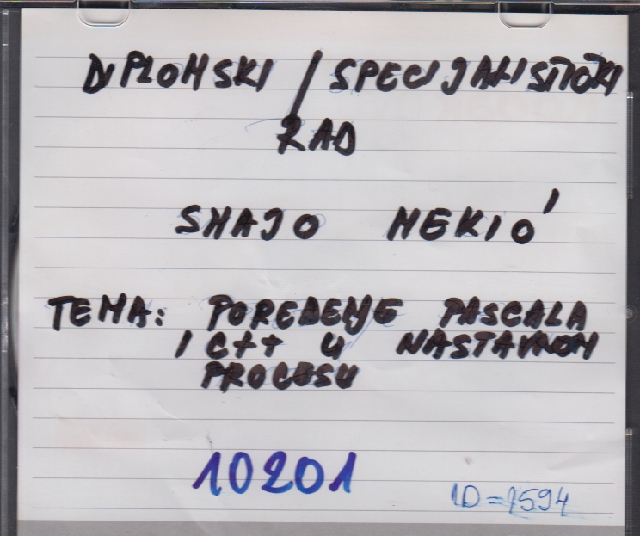 DIPLOMSKI / SPECIJALISTIČKI
RAD
SMAJO MEKIĆ
TEMA: POREĐENJE PASCALA
I C++ U NASTAVNOM
PROCESU
10201
ID=1594